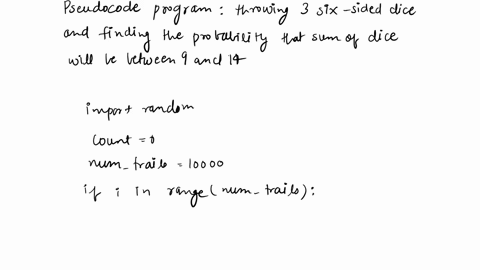 Pseudocode program : throwing 3 six-sided dice
and finding the probability that sum of dice
will be between 9 and 14
import random
count = 0
num_trails = 10000
if i in range(num_trails):